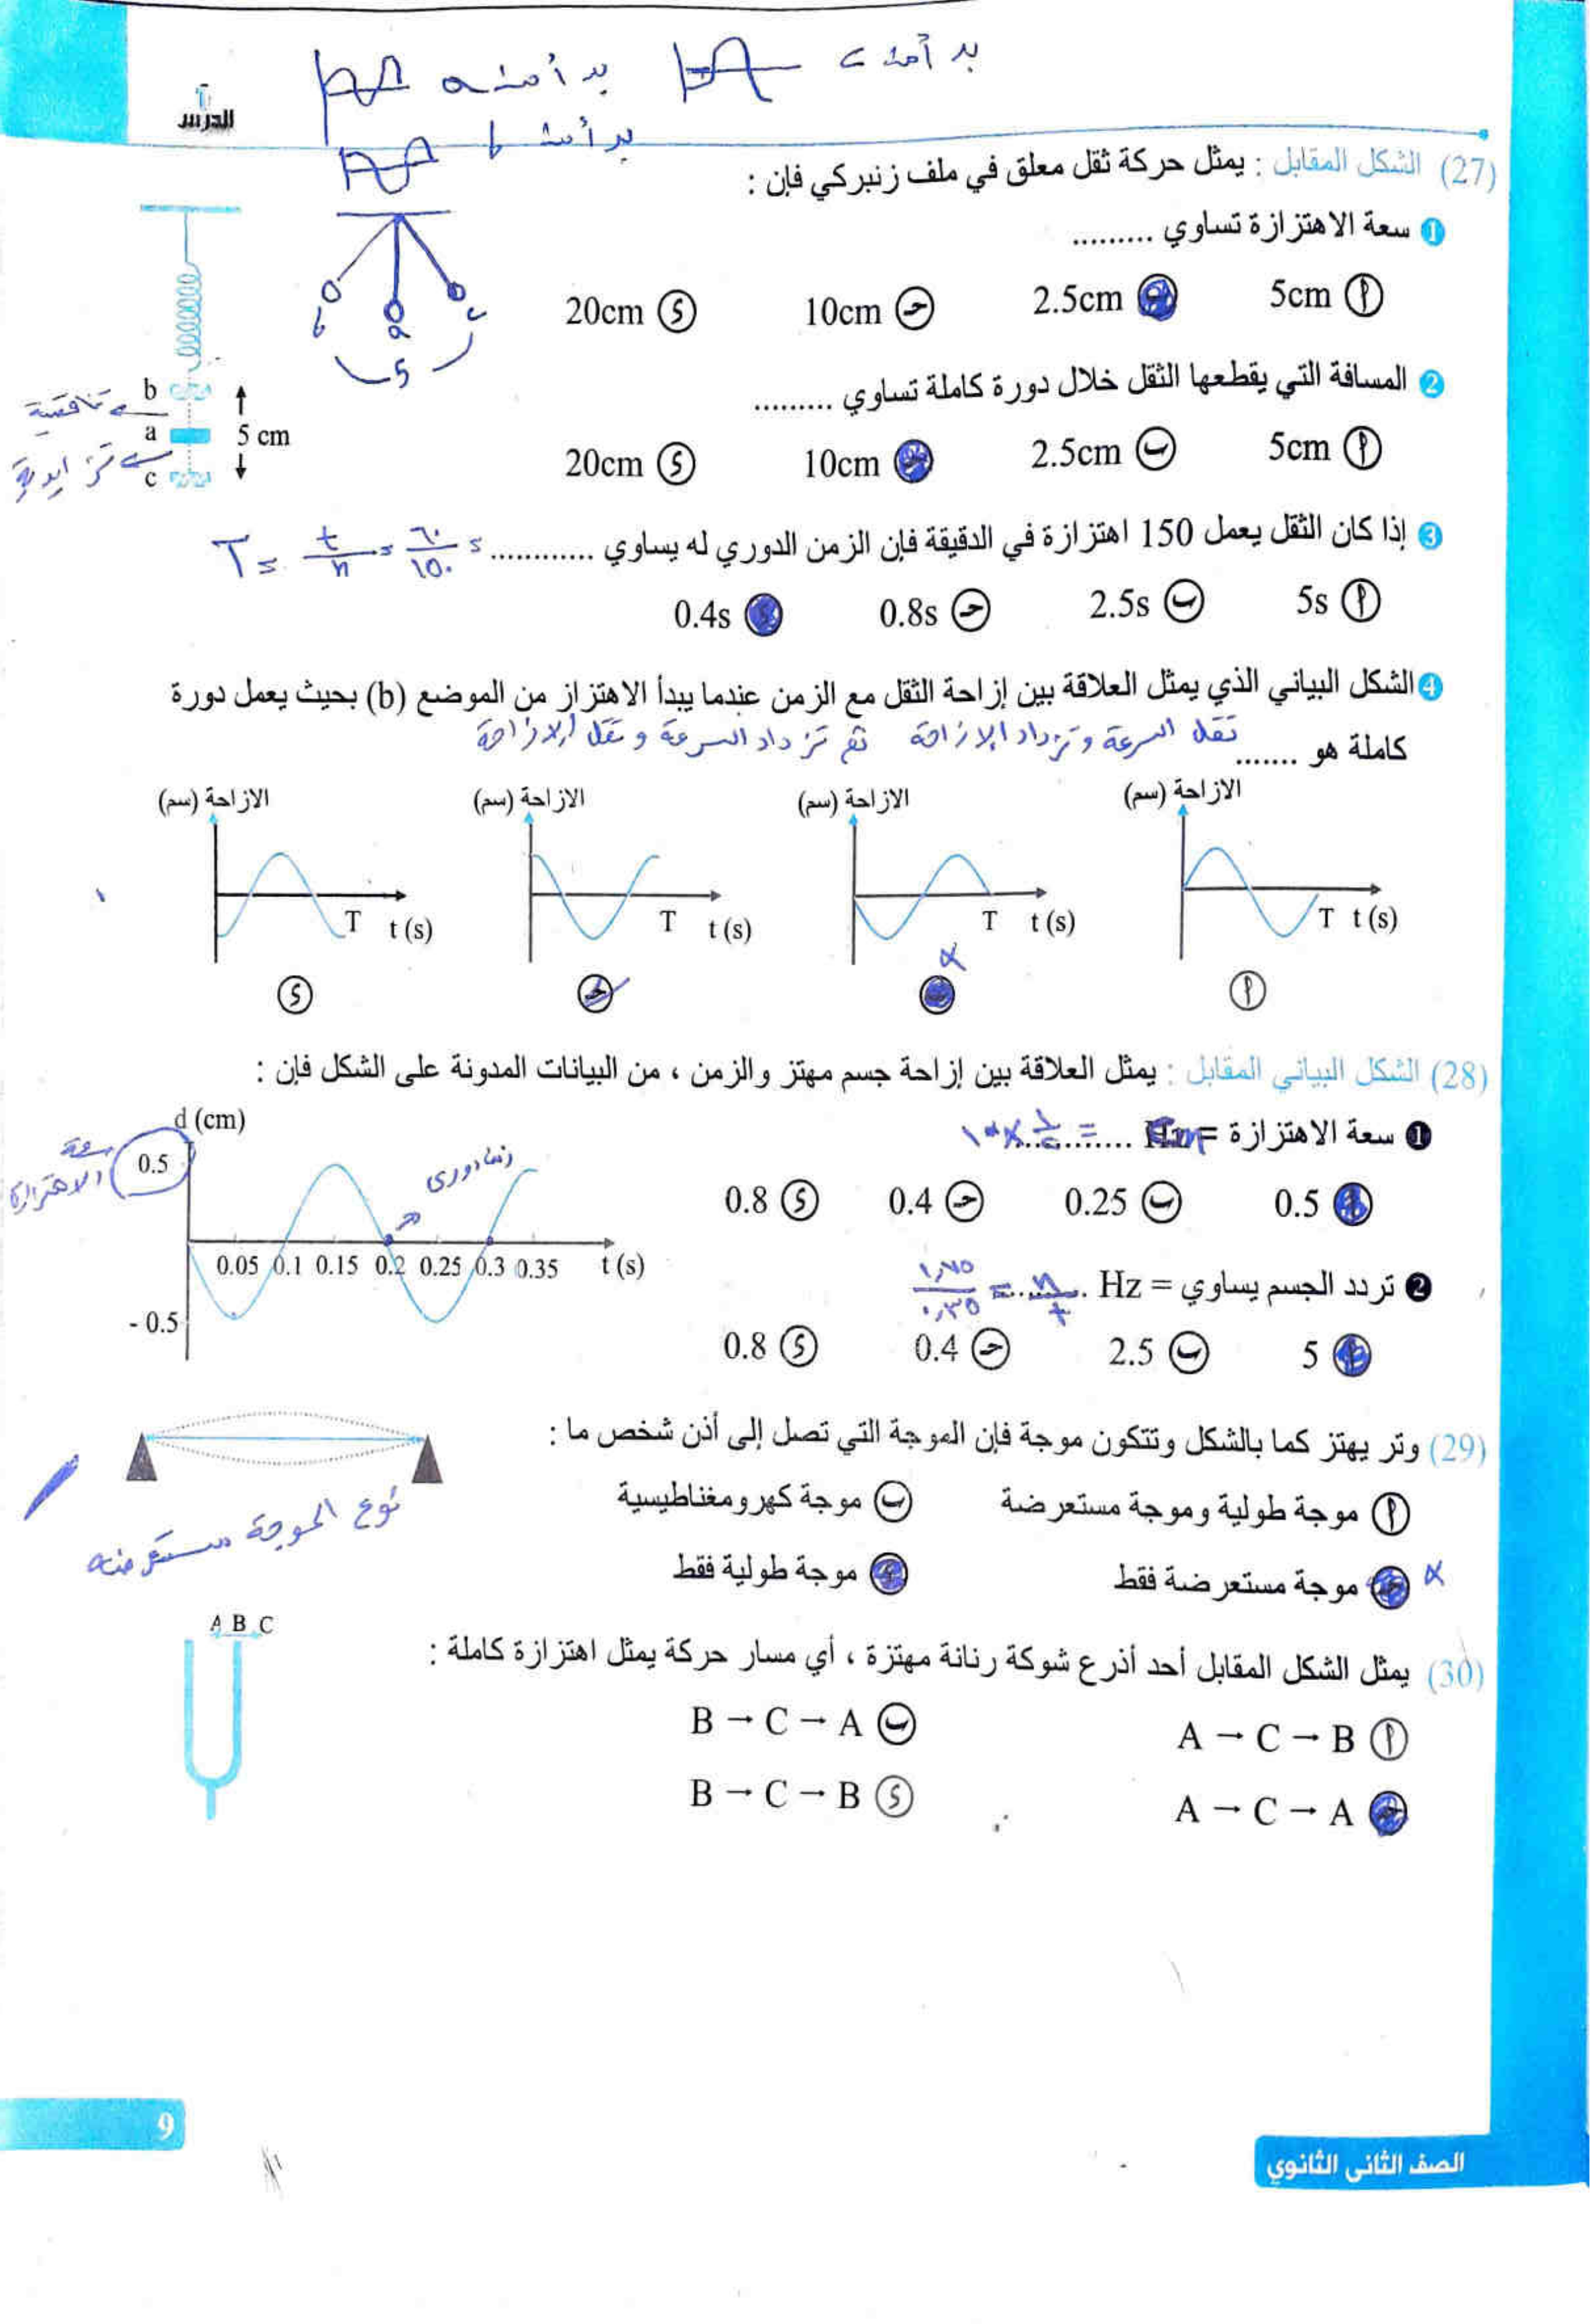 بدأ من c
بدأ من a
بدأ من b
الدرس
(27) الشكل المقابل : يمثل حركة ثقل معلق في ملف زنبركي فإن :
1 سعة الاهتزازة تساوي .........
أ 5cm ب 2.5cm ج 10cm د 20cm
b
a
c
5 cm
2 المسافة التي يقطعها الثقل خلال دورة كاملة تساوي .........
أ 5cm ب 2.5cm ج 10cm د 20cm
3 إذا كان الثقل يعمل 150 اهتزازة في الدقيقة فإن الزمن الدوري له يساوي ............
T = t/n = ٦٠/١٥٠ =
أ 5s ب 2.5s ج 0.8s د 0.4s
4 الشكل البياني الذي يمثل العلاقة بين إزاحة الثقل مع الزمن عندما يبدأ الاهتزاز من الموضع (b) بحيث يعمل دورة
كاملة هو .......
تقل السرعة وتزداد الإزاحة ثم تزداد السرعة وتقل الإزاحة
الازاحة (سم) الازاحة (سم) الازاحة (سم) الازاحة (سم)
T t (s) T t (s) T t (s) T t (s)
أ ب ج د
(28) الشكل البياني المقابل : يمثل العلاقة بين إزاحة جسم مهتز والزمن ، من البيانات المدونة على الشكل فإن :
d (cm)
0.5
سعة
الاهتزازة
زمن دورى
0.05 0.1 0.15 0.2 0.25 0.3 0.35 t (s)
- 0.5
1 سعة الاهتزازة = cm ............
أ 0.5 ب 0.25 ج 0.4 د 0.8
2 تردد الجسم يساوي = Hz ......... n/t = ١,٧٥/٠,٣٥
أ 5 ب 2.5 ج 0.4 د 0.8
(29) وتر يهتز كما بالشكل وتتكون موجة فإن الموجة التي تصل إلى أذن شخص ما :
أ موجة طولية وموجة مستعرضة ب موجة كهرومغناطيسية
ج موجة مستعرضة فقط د موجة طولية فقط
نوع الموجة مستعرضه
(30) يمثل الشكل المقابل أحد أذرع شوكة رنانة مهتزة ، أي مسار حركة يمثل اهتزازة كاملة :
A B C
أ A → C → B ب B → C → A
ج A → C → A د B → C → B
9
الصف الثانى الثانوي